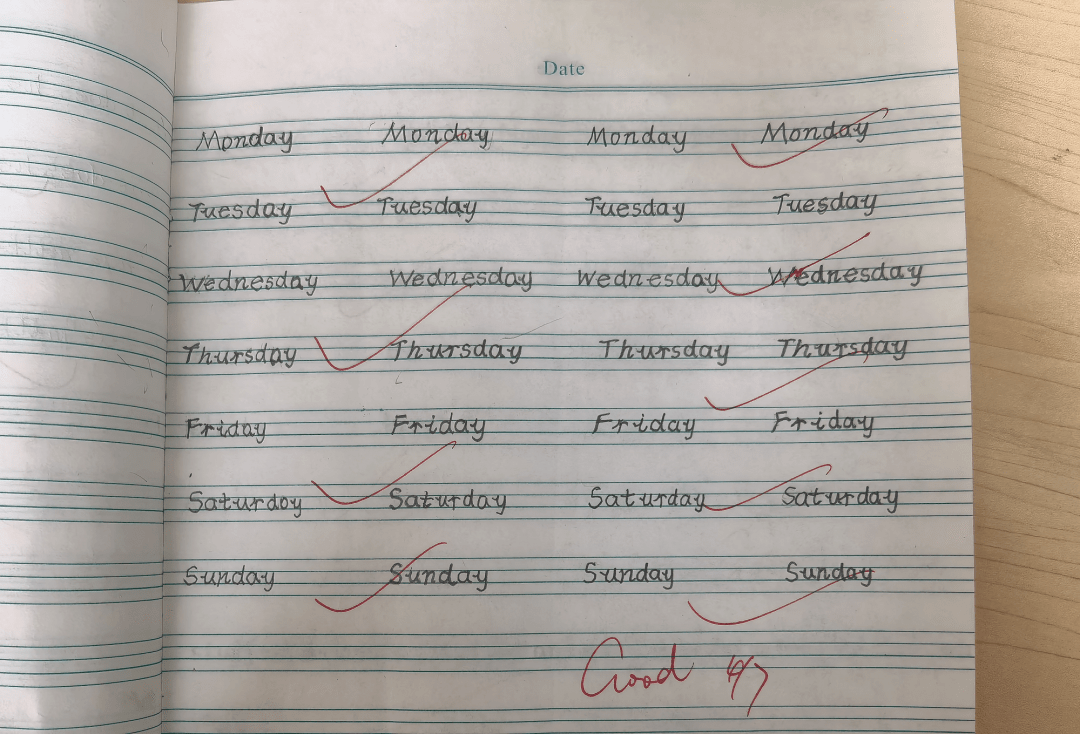 Date
Monday Monday Monday Monday
Tuesday Tuesday Tuesday Tuesday
Wednesday Wednesday Wednesday Wednesday
Thursday Thursday Thursday Thursday
Friday Friday Friday Friday
Saturdoy Saturday Saturday Saturday
Sunday Sunday Sunday Sunday
Good